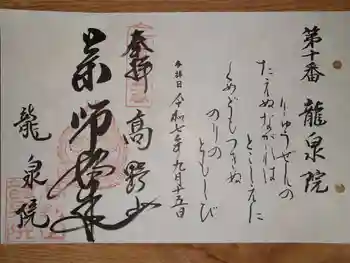 第十番 龍泉院
りゅうせんの
たえぬながれは
とこしえに
くめどもつきぬ
のりの
ともしび
参拝日 令和七年九月十五日
奉拝 高野山
薬師如来
龍泉院